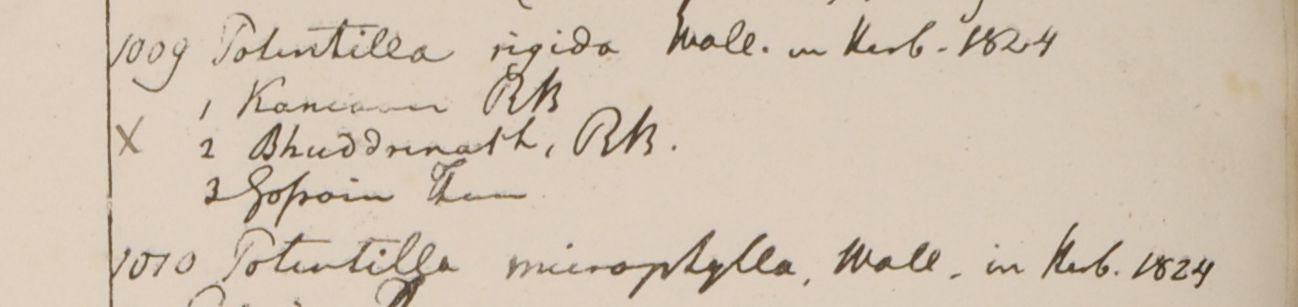 1009 Potentilla rigida Wall. in Herb. 1824
1 Kamaon RB
X 2 Bhuddrinath, RB.
3 Gossain Than
1010 Potentilla microphylla, Wall. in Herb. 1824